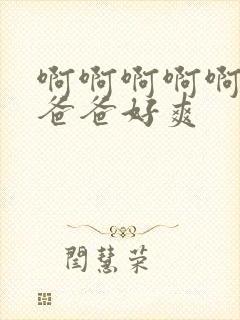 啊啊啊啊啊
爸爸好爽
閆慧荣